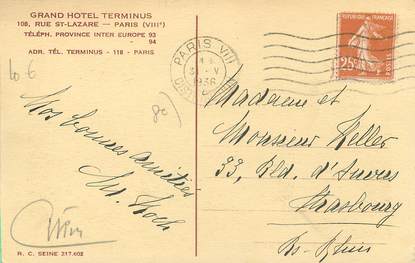 GRAND HOTEL TERMINUS
108, RUE ST-LAZARE — PARIS (VIIIᵉ)
TÉLÉPH. PROVINCE INTER EUROPE 93
94
ADR. TÉL. TERMINUS - 118 - PARIS
PARIS VIII
1936
REPUBLIQUE FRANÇAISE
25c
POSTES
106
80
Nos bonnes amitiés
M. Koch
Madame et
Monsieur Heller
33, Bld. d'Anvers
Strasbourg
Bs-Rhin
R. C. SEINE 217.602